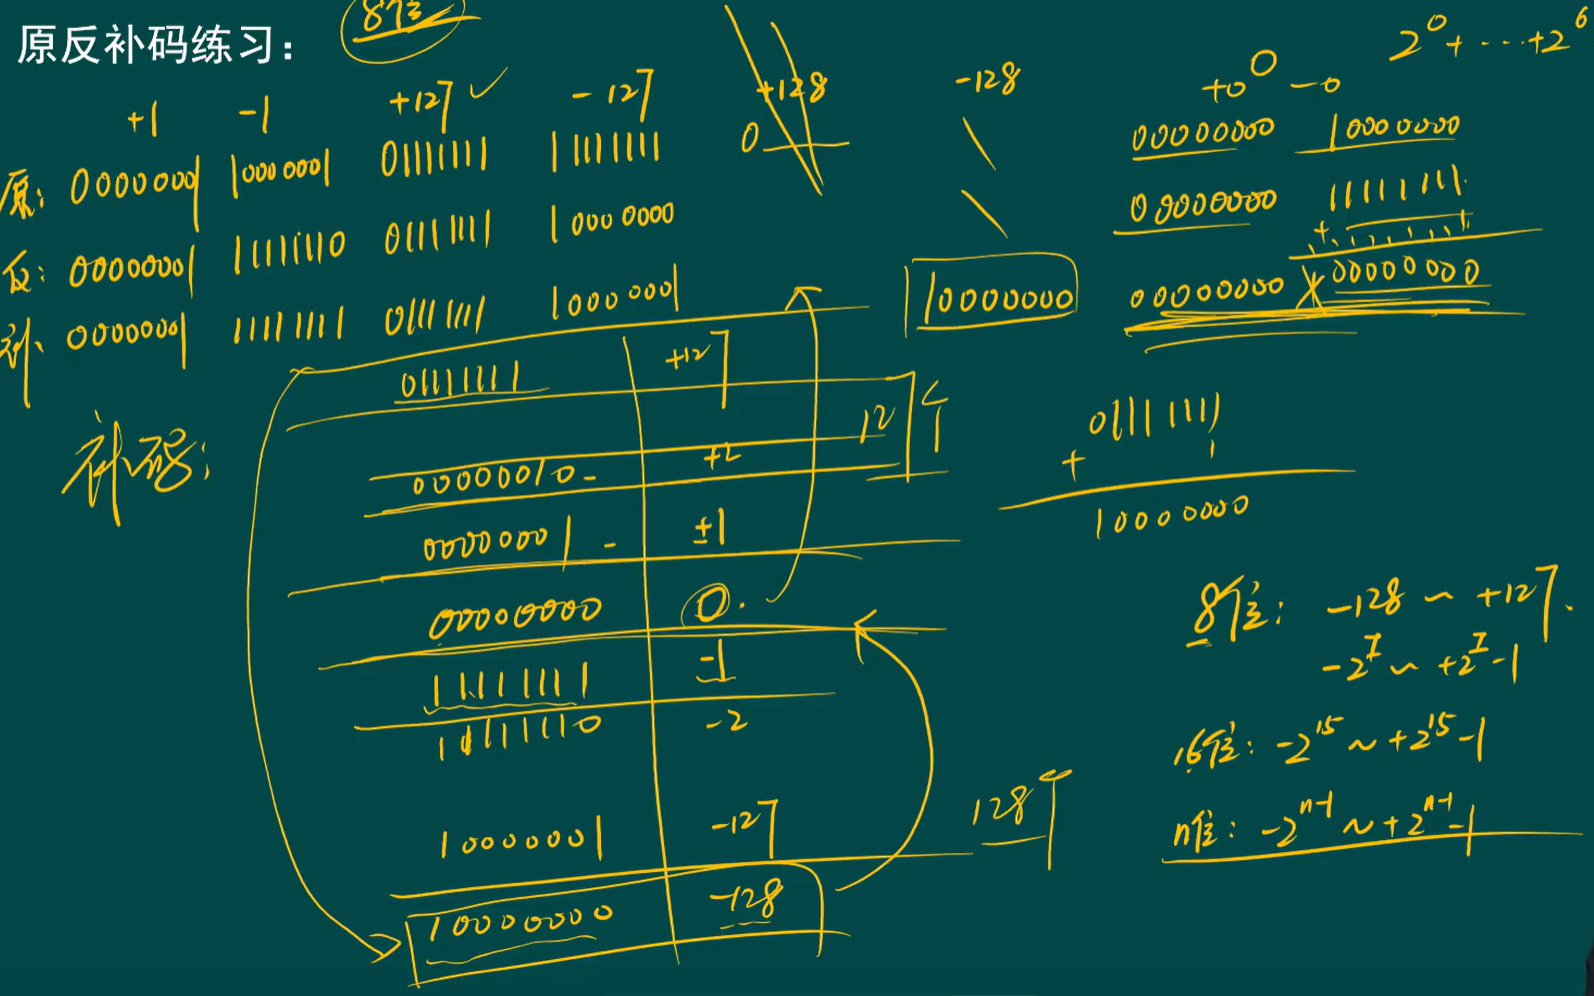 原反补码练习：
8位
+1 -1 +127 ✓ -127 +128 -128 +0 0 -0 2^0+⋯+2^6
原: 00000001 10000001 01111111 11111111 0 00000000 10000000
反: 00000001 11111110 01111111 10000000 00000000 11111111
+ 1
补: 00000001 11111111 01111111 10000001 10000000 00000000 00000000
补码:
01111111 +127
127个
00000010 +2
00000001 +1
00000000 0
11111111 -1
11111110 -2
10000001 -127
128个
10000000 -128
01111111
+ 1
10000000
8位: -128 ~ +127.
-2^7 ~ +2^7-1
16位: -2^15 ~ +2^15-1
n位: -2^n-1 ~ +2^n-1-1